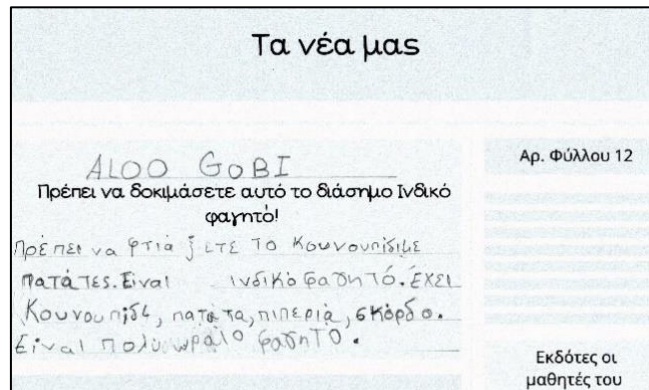 Τα νέα μας
ALOO GOBI
Πρέπει να δοκιμάσετε αυτό το διάσημο Ινδικό
φαγητό!
Πρέπει να φτιάξετε το Κουνουπίδιμε
πατάτες. Είναι ινδικό φαγητό. Έχει
Κουνουπίδι, πατάτα, πιπεριά, σκόρδο.
Είναι πολυωραίο φαγητο.
Αρ. Φύλλου 12
Εκδότες οι
μαθητές του